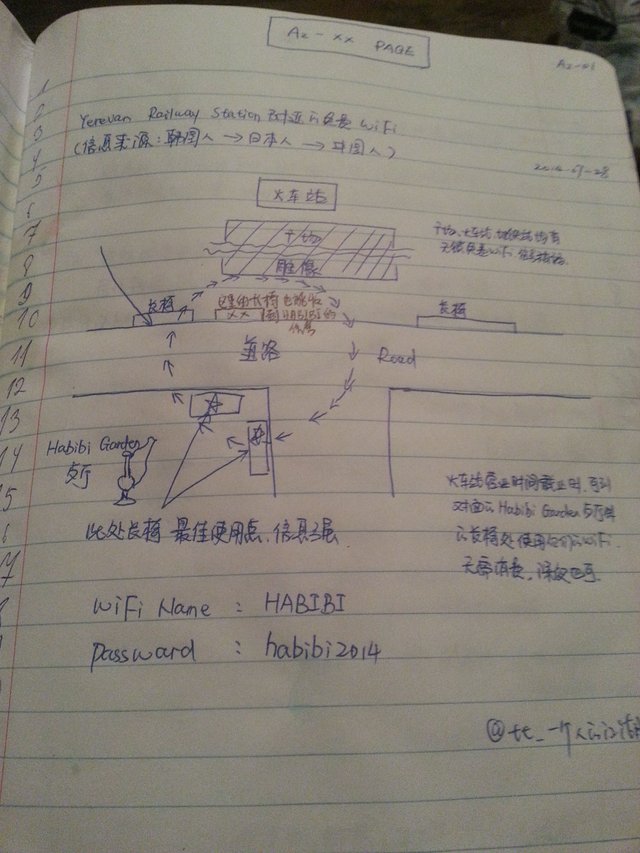 A2-XX PAGE
A2-01
1
2
3
4
5
6
7
8
9
10
11
12
13
14
15
Yerevan Railway Station 附近的免费 WiFi
(信息来源:韩国人 → 日本人 → 中国人)
火车站
广场
雕像
广场,火车站 均有
无线免费 WiFi
长椅
这里的长椅也能收
到 HABIBI 的
信号
长椅
马路
Road
Habibi Garden
餐厅
此处长椅 最佳使用点, 信息3层
火车站营业时间截止时,可到
对面的 Habibi Garden 餐厅
的长椅处使用他们的WiFi.
无需消费,深夜也可.
WiFi Name : HABIBI
Passward : habibi2014
@tt_一个人的